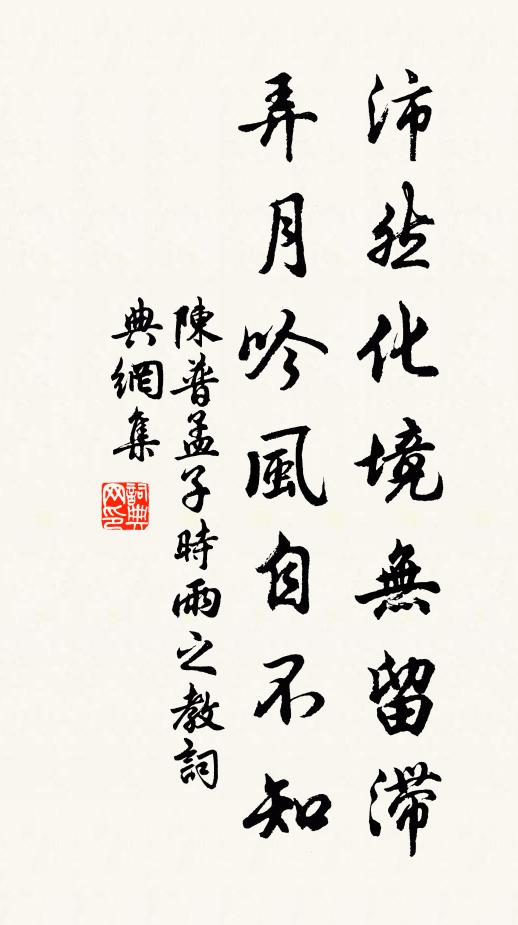 沛然化境無留滯
弄月吟風自不知
陳普孟子時雨之教詞
典網集
詞典網印